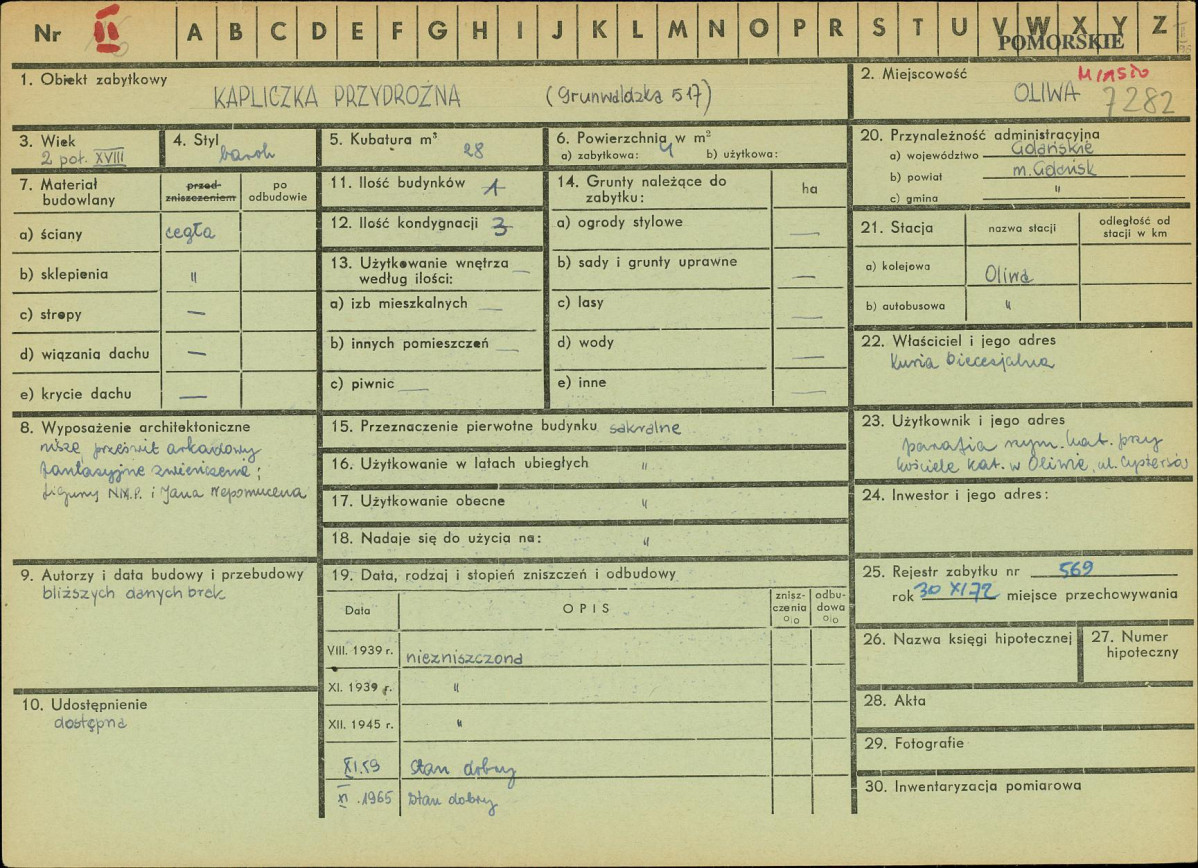 Nr II A B C D E F G H I J K L M N O P R S T U V W X Y Z
POMORSKIE
1. Obiekt zabytkowy
KAPLICZKA PRZYDROŻNA (Grunwaldzka 517)
2. Miejscowość MIASTO
OLIWA 7282
3. Wiek
2 poł. XVIII
4. Styl
barok
5. Kubatura m³
28
6. Powierzchnia w m²
a) zabytkowa: 4 b) użytkowa:
7. Materiał budowlany
przed zniszczeniem
po odbudowie
a) ściany cegła
b) sklepienia "
c) stropy —
d) wiązania dachu —
e) krycie dachu —
8. Wyposażenie architektoniczne
nisze prześwit arkadowy
fantazyjne zwieńczenie;
figury N.M.P. i Jana Nepomucena
9. Autorzy i data budowy i przebudowy
bliższych danych brak
10. Udostępnienie
dostępna
11. Ilość budynków 1
12. Ilość kondygnacji 3
13. Użytkowanie wnętrza —
według ilości:
a) izb mieszkalnych —
b) innych pomieszczeń —
c) piwnic —
14. Grunty należące do
zabytku:
ha
a) ogrody stylowe —
b) sady i grunty uprawne —
c) lasy —
d) wody —
e) inne —
15. Przeznaczenie pierwotne budynku sakralne
16. Użytkowanie w latach ubiegłych "
17. Użytkowanie obecne "
18. Nadaje się do użycia na: "
19. Data, rodzaj i stopień zniszczeń i odbudowy
Data
OPIS
znisz-
czenia
o/o
odbu-
dowa
o/o
VIII. 1939 r. niezniszczona
XI. 1939 r. "
XII. 1945 r. "
XI.59 Stan dobry
XI.1965 Stan dobry
20. Przynależność administracyjna
a) województwo Gdańskie
b) powiat m. Gdańsk
c) gmina "
21. Stacja
nazwa stacji
odległość od
stacji w km
a) kolejowa Oliwa
b) autobusowa "
22. Właściciel i jego adres
Kuria Diecezjalna
23. Użytkownik i jego adres
parafia rzym. kat. przy
kościele kat. w Oliwie, ul. Cystersów
24. Inwestor i jego adres:
25. Rejestr zabytku nr 569
rok 30 XI 72 miejsce przechowywania
26. Nazwa księgi hipotecznej
27. Numer
hipoteczny
28. Akta
29. Fotografie
30. Inwentaryzacja pomiarowa